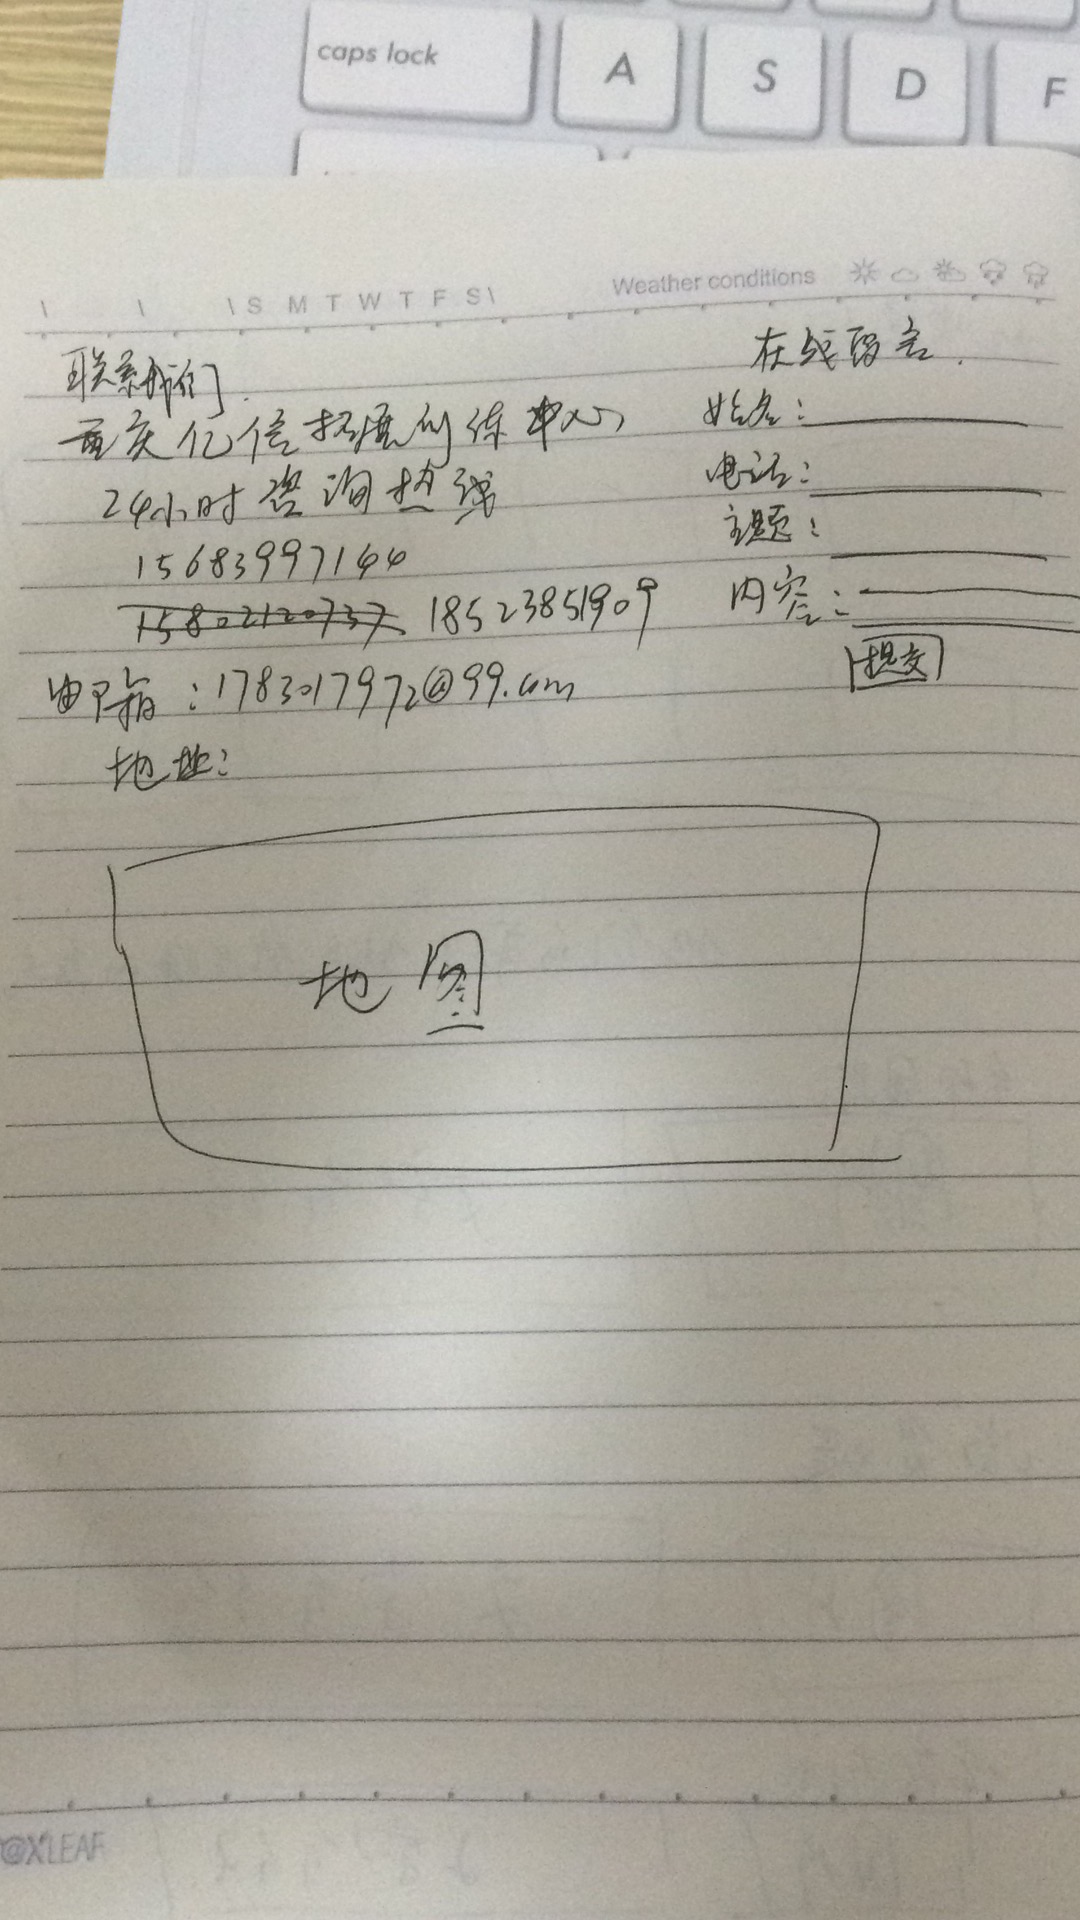 caps lock
A S D F
\ \ \ S M T W T F S \
Weather conditions
联系我们.
重庆亿信拓展训练中心
24小时咨询热线
15683997144
15802120737 18523851909
邮箱:1783017972@99.com
地址:
在线留言.
姓名:
电话:
主题:
内容:
提交
地图
@X'LEAF